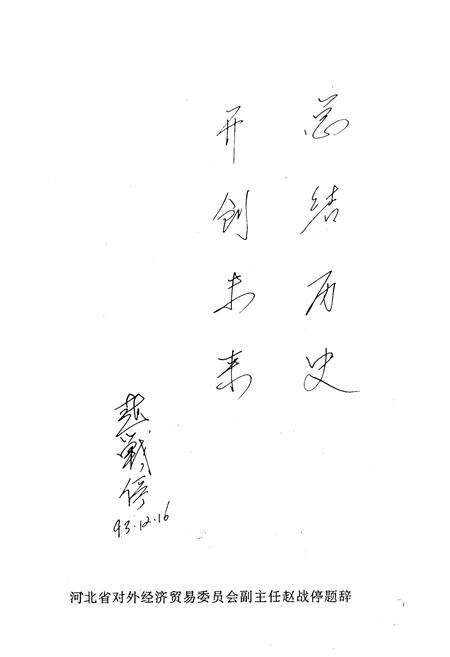 总结历史
开创未来
赵战停
93.12.16
河北省对外经济贸易委员会副主任赵战停题辞